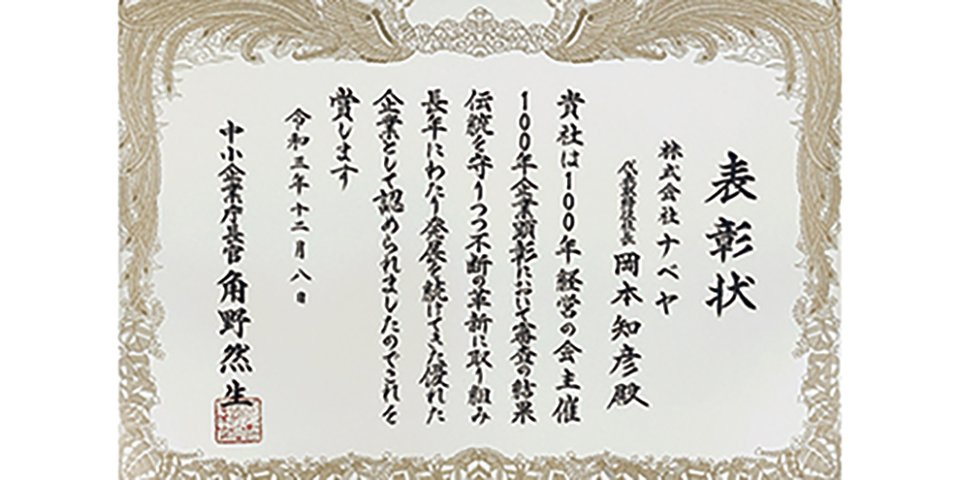 表彰状
株式会社ナベヤ
代表取締役社長 岡本知彦殿
貴社は100年経営の会主催
100年企業顕彰において審査の結果
伝統を守りつつ不断の革新に取り組み
長年にわたり発展を続けてきた優れた
企業として認められましたのでこれを
賞します
令和三年十二月八日
中小企業庁長官 角野然生